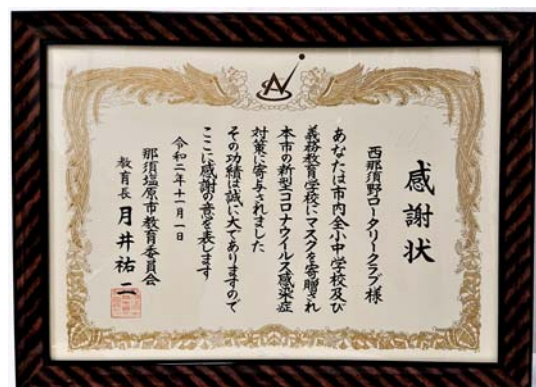 感謝状
西那須野ロータリークラブ様
あなたは市内全小中学校及び
義務教育学校にマスクを寄贈され
本市の新型コロナウイルス感染症
対策に寄与されました
その功績は誠に大でありますので
ここに感謝の意を表します
令和二年十一月一日
那須塩原市教育委員会
教育長 月井祐二